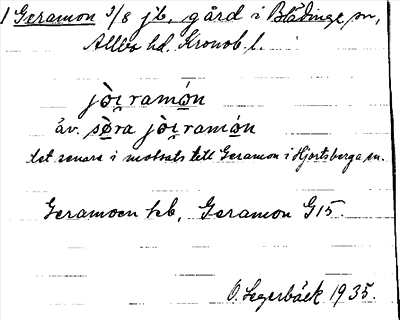 1 Geramon 3/8 jb, gård i Blädinge sn,
Allbo hd, Kronob. l.
jò̤i̯ ramó̤n
äv. sø̤ra jò̤i̯ ramo̤n
det senare i motsats till Geramon i Hjortsberga sn.
Geramoen kb, Geramon G15.
O. Segerbäck 1935.